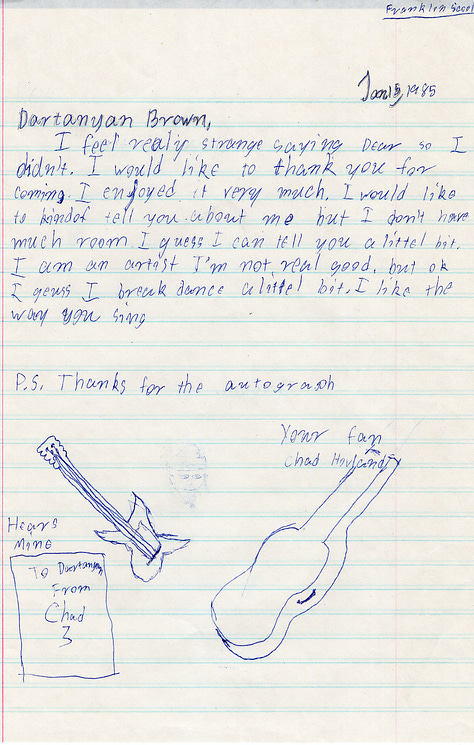 Franklin Scool
Jan 15, 1985
Dartanyan Brown,
I feel realy strange saying Dear so I
didn't. I would like to thank you for
coming. I enjoyed it very much. I would like
to kindof tell you about me but I don't have
much room. I guess I can tell you a littel bit.
I am an artist I'm not real good, but ok
I geuss I break dance a littel bit. I like the
way you sing
P.S. Thanks for the autograph
Your fan
Chad
Hears
Mine
To Dartanyan
From
Chad
3